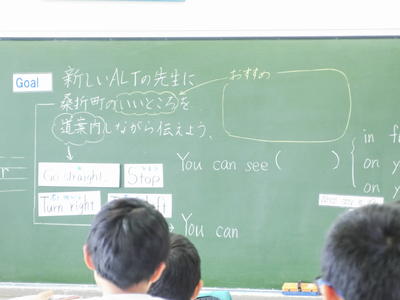 Goal
新しいALTの先生に
桑折町のいいところを
道案内しながら伝えよう。
おすすめ
Go straight.
Stop
Turn right
You can see (          )
in f
on y
on y
You can